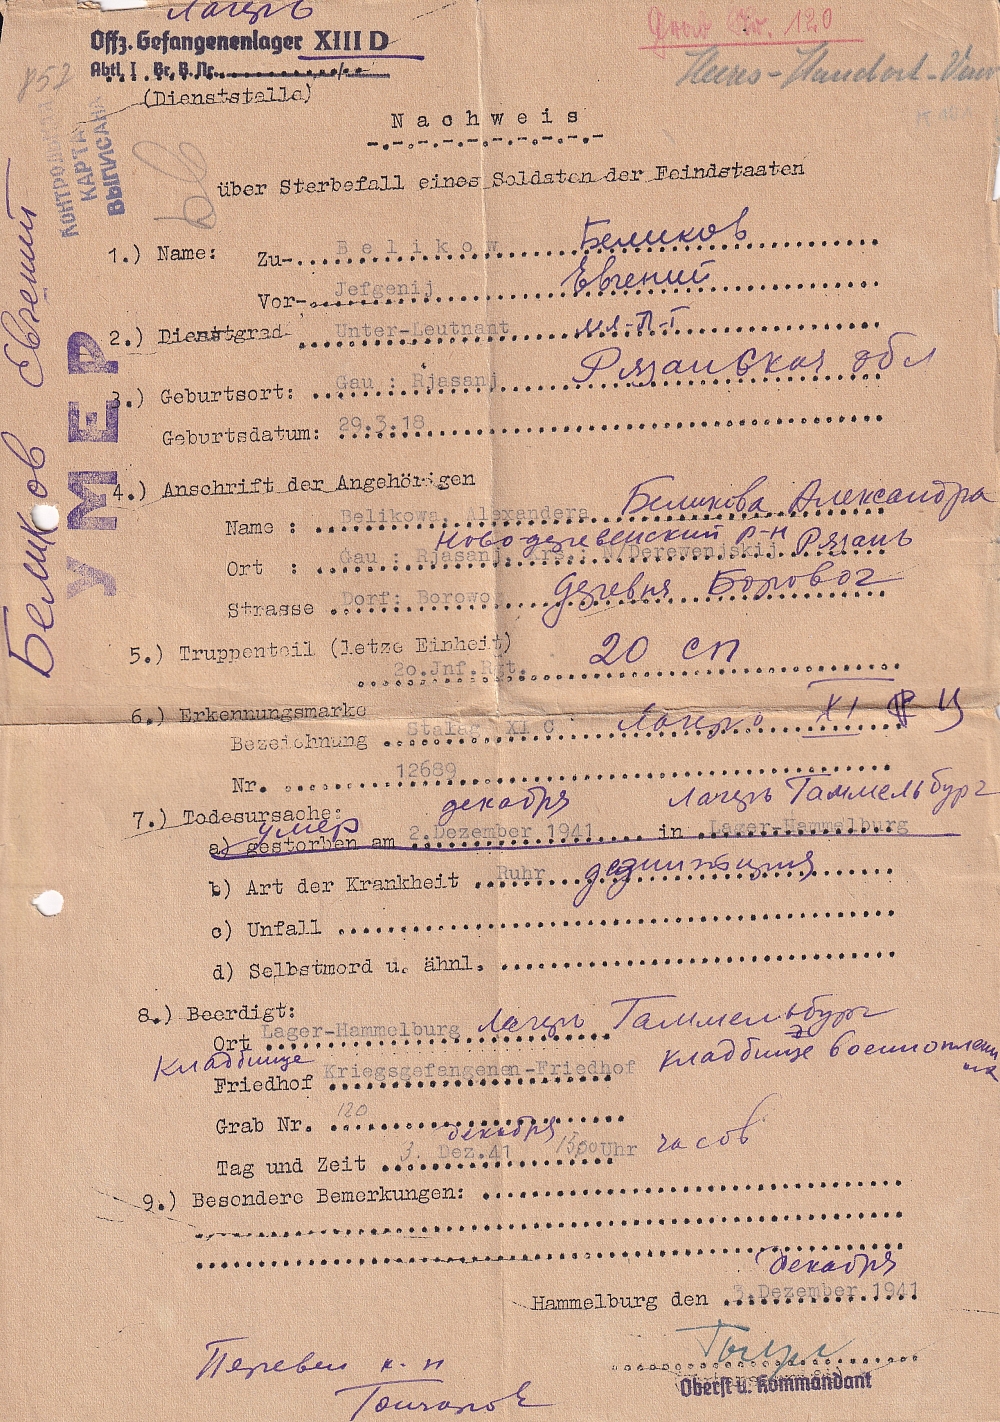 Лагерь
Offz. Gefangenenlager XIII D
Grab Nr. 120
Abtl. I Br. B. Nr. ........../..
Heeres-Standort-Verw
857
(Dienststelle)
КОНТРОЛЬНАЯ
КАРТА
ВЫПИСАНА
Nachweis
über Sterbefall eines Soldaten der Feindstaaten
Беликов Евгений
УМЕР
1.) Name: Zu- Belikow Беликов
Vor- Jefgenij Евгений
2.) Dienstgrad Unter-Leutnant мл-л-т
3.) Geburtsort: Gau : Rjasanj Рязанская обл
Geburtsdatum: 29.3.18
4.) Anschrift der Angehörigen
Name : Belikowa, Alexandera Беликова Александра
Новодеревенский р-н Рязань
Ort : Gau : Rjasanj, Krs.: N/Derewenjskij
Strasse Dorf: Borowog деревня Боровог
5.) Truppenteil (letze Einheit)
2o.Jnf.Rgt. 20 сп
6.) Erkennungsmarke
Bezeichnung Stalag XI C Лагерь XI Ц
Nr. 12689
7.) Todesursache: декабря Лагерь Гаммельбург
умер
a) gestorben am 2.Dezember 1941 in Lager-Hammelburg
b) Art der Krankheit Ruhr дезинтерия
c) Unfall
d) Selbstmord u. ähnl.
8.) Beerdigt:
Ort Lager-Hammelburg Лагерь Гаммельбург
Кладбище кладбище военноплен
Friedhof Kriegsgefangenen-Friedhof
Grab Nr. 120
декабря
Tag und Zeit 3. Dez.41 1500 Uhr часов
9.) Besondere Bemerkungen:
декабря
Hammelburg den 3.Dezember 1941
Перевел к-н
Гончаров
Oberst u. Kommandant